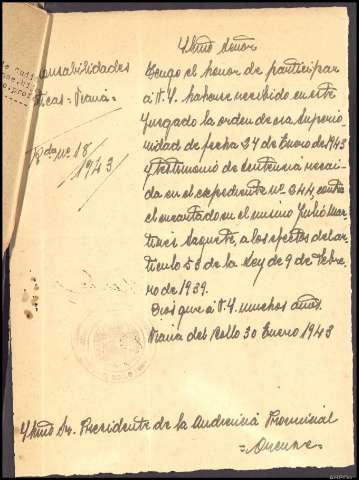 Ylmo Señor
Tengo el honor de participar
á V.Y. haberse recibido en este
Juzgado la orden de esa Superio-
ridad de fecha 27 de Enero de 1943
y testimonio de sentencia recai-
da en el expediente nº 344, contra
el encartado en el mismo Julio Mar-
tinez Baquete, a los efectos del ar-
ticulo 53 de la Ley de 9 de Febre-
ro de 1939.
Dios gue á V.Y. muchos años.
Viana del Bollo 30 Enero 1943
Ylmo Sr. Presidente de la Audiencia Provincial
= Orense =
onsabilidades
ticas = Viana =
nº 18/
1943